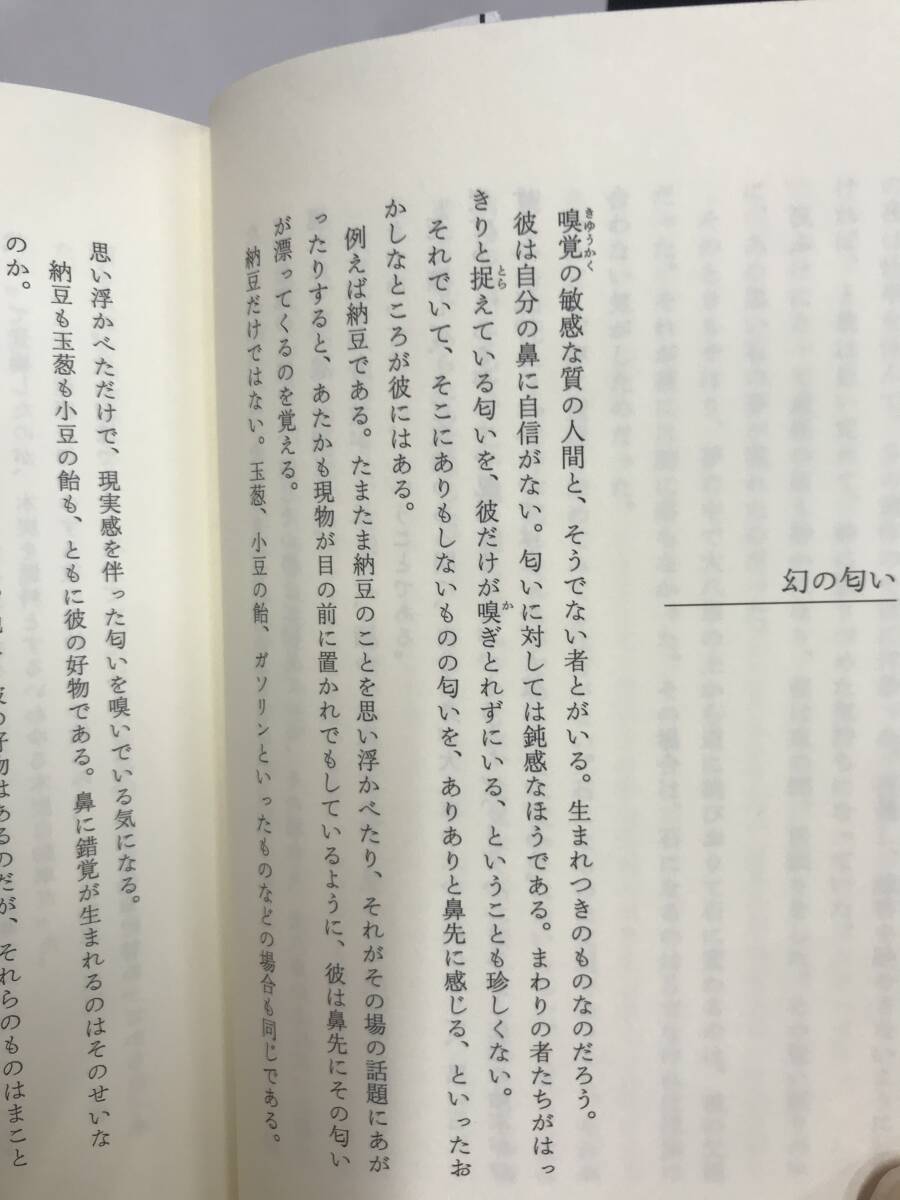 幻の匂い
嗅覚の敏感な質の人間と、そうでない者とがいる。生まれつきのものなのだろう。
きゆうかく
彼は自分の鼻に自信がない。匂いに対しては鈍感なほうである。まわりの者たちがはっ
きりと捉えている匂いを、彼だけが嗅ぎとれずにいる、ということも珍しくない。
とら
か
それでいて、そこにありもしないものの匂いを、ありありと鼻先に感じる、といったお
かしなところが彼にはある。
例えば納豆である。たまたま納豆のことを思い浮かべたり、それがその場の話題にあが
ったりすると、あたかも現物が目の前に置かれでもしているように、彼は鼻先にその匂い
が漂ってくるのを覚える。
納豆だけではない。玉葱、小豆の飴、ガソリンといったものなどの場合も同じである。
思い浮かべただけで、現実感を伴った匂いを嗅いでいる気になる。
納豆も玉葱も小豆の飴も、ともに彼の好物である。鼻に錯覚が生まれるのはそのせいな
のか。
好物はあるのだが、それらのものはまこと